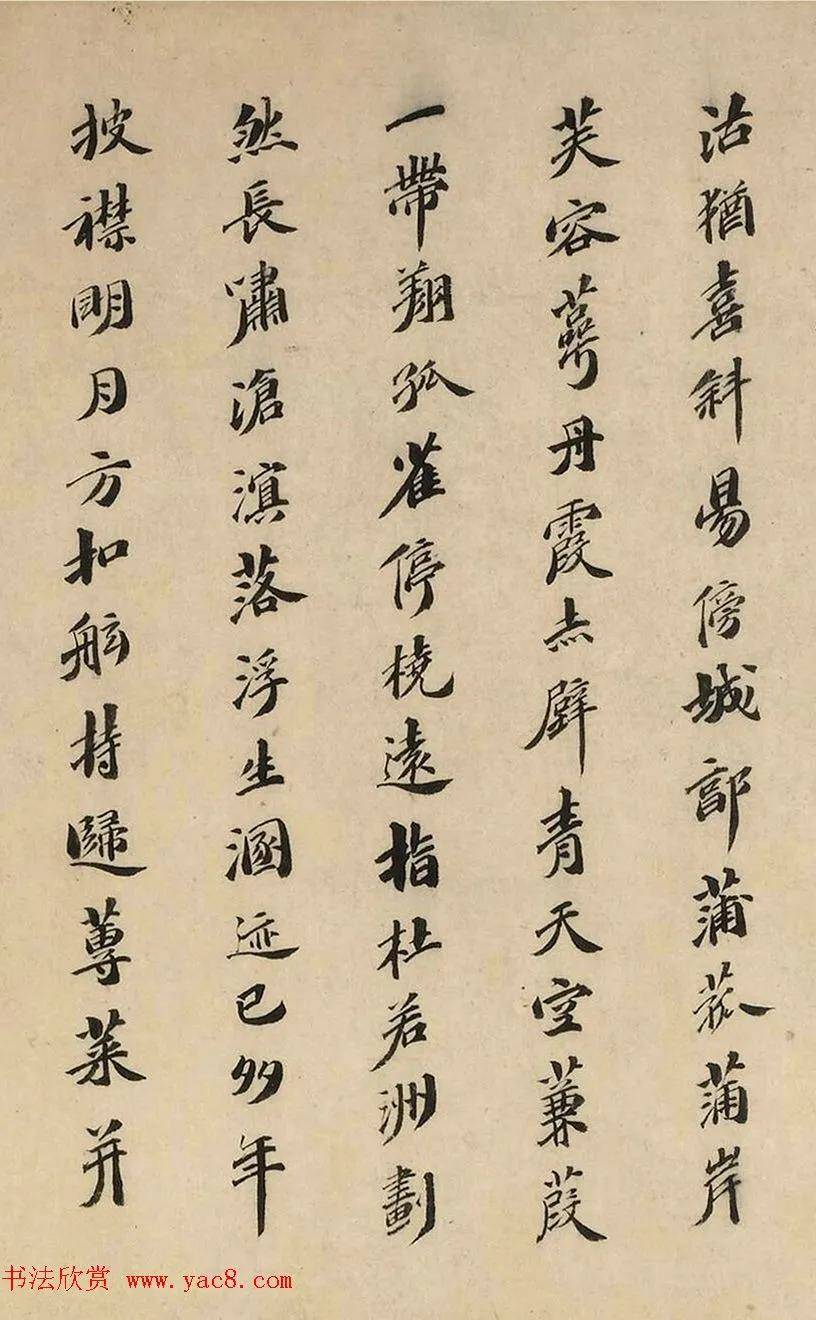 沽猶喜斜昜傍城郭蒲菰蒲岸
芙容萼丹霞赤壁青天空蒹葭
一帶翔孤雀停橈遠指杜若洲劃
然長嘯滄溟落浮生溷迹已多年
披襟明月方扣舷持歸蓴菜并
书法欣赏 www.yac8.com